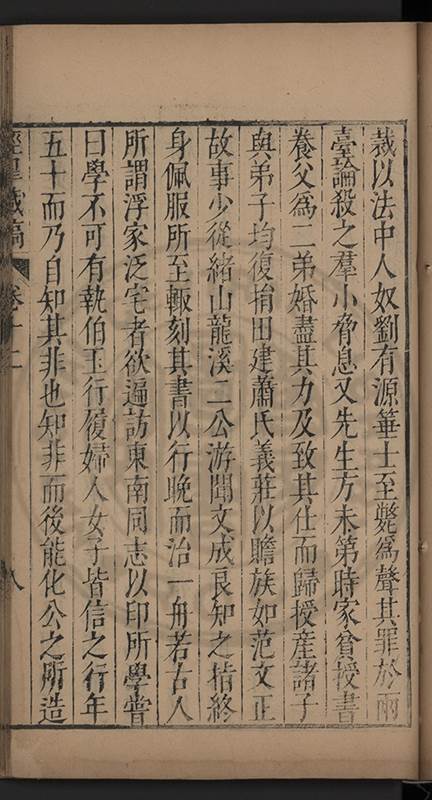 裁以法中人奴劉有源箠士至斃爲聲其罪於兩
臺論殺之羣小脅息又先生方未第時家貧授書
養父爲二弟婚盡其力及致其仕而歸授產諸子
與弟子均復捐田建蕭氏義莊以贍族如范文正
故事少從緒山龍溪二公游聞文成良知之指終
身佩服所至輙刻其書以行晚而治一舟若古人
所謂浮家泛宅者欲遍訪東南同志以印所學嘗
曰學不可有執伯玉行履婦人女子皆信之行年
五十而乃自知其非也知非而後能化公之所造
藏稿
卷十二
八